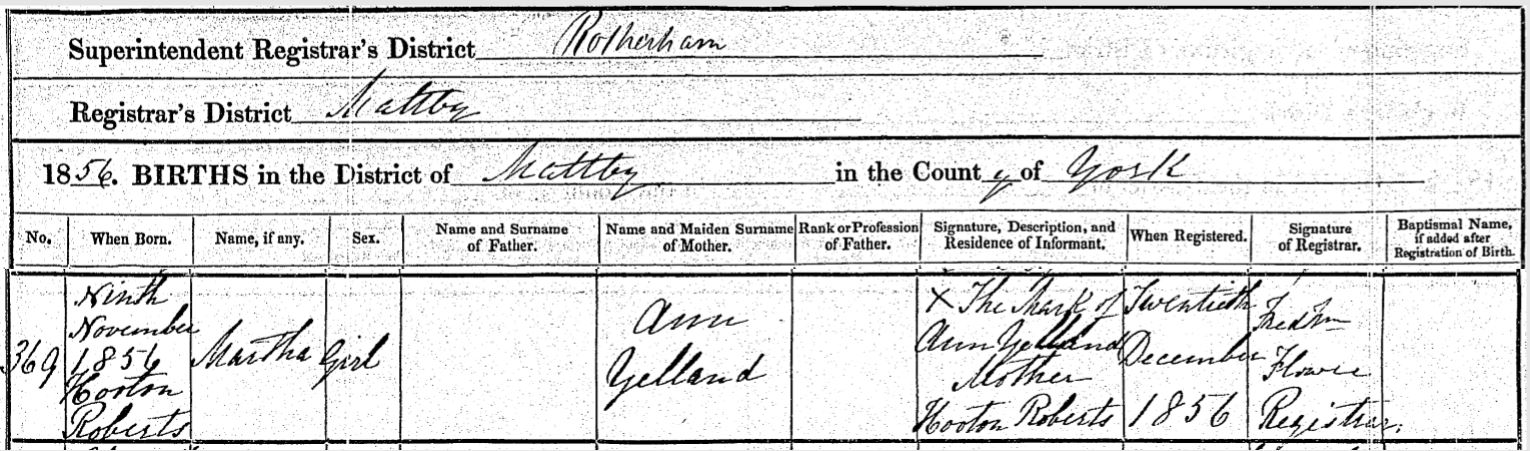 Superintendent Registrar's District Rotherham
Registrar's District Maltby
1856. BIRTHS in the District of Maltby in the County of York
No. When Born. Name, if any. Sex. Name and Surname of Father. Name and Maiden Surname of Mother. Rank or Profession of Father. Signature, Description, and Residence of Informant. When Registered. Signature of Registrar. Baptismal Name, if added after Registration of Birth.
369
Ninth
November
1856
Hooton
Roberts
Martha
Girl
Ann
Yelland
X The Mark of
Ann Yelland
Mother
Hooton Roberts
Twentieth
December
1856
Flower
Registrar.